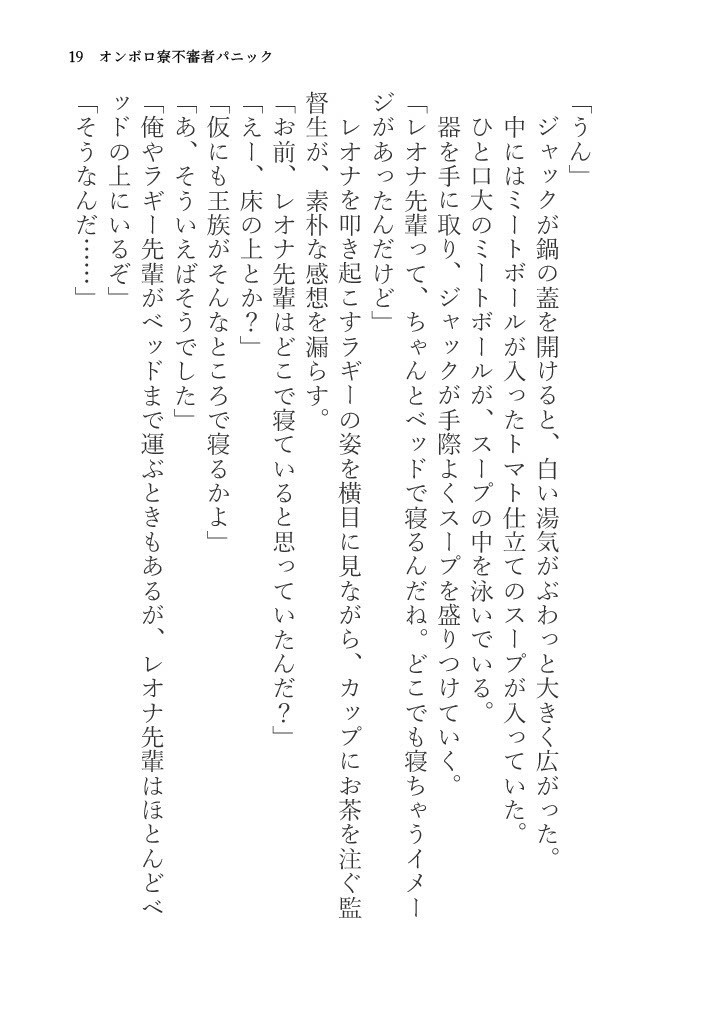 19 オンボロ寮不審者パニック
「うん」
　ジャックが鍋の蓋を開けると、白い湯気がぶわっと大きく広がった。
中にはミートボールが入ったトマト仕立てのスープが入っていた。
　ひと口大のミートボールが、スープの中を泳いでいる。
　器を手に取り、ジャックが手際よくスープを盛りつけていく。
「レオナ先輩って、ちゃんとベッドで寝るんだね。どこでも寝ちゃうイメー
ジがあったんだけど」
　レオナを叩き起こすラギーの姿を横目に見ながら、カップにお茶を注ぐ監
督生が、素朴な感想を漏らす。
「お前、レオナ先輩はどこで寝ていると思っていたんだ？」
「えー、床の上とか？」
「仮にも王族がそんなところで寝るかよ」
「あ、そういえばそうでした」
「俺やラギー先輩がベッドまで運ぶときもあるが、レオナ先輩はほとんどベ
ッドの上にいるぞ」
「そうなんだ……」